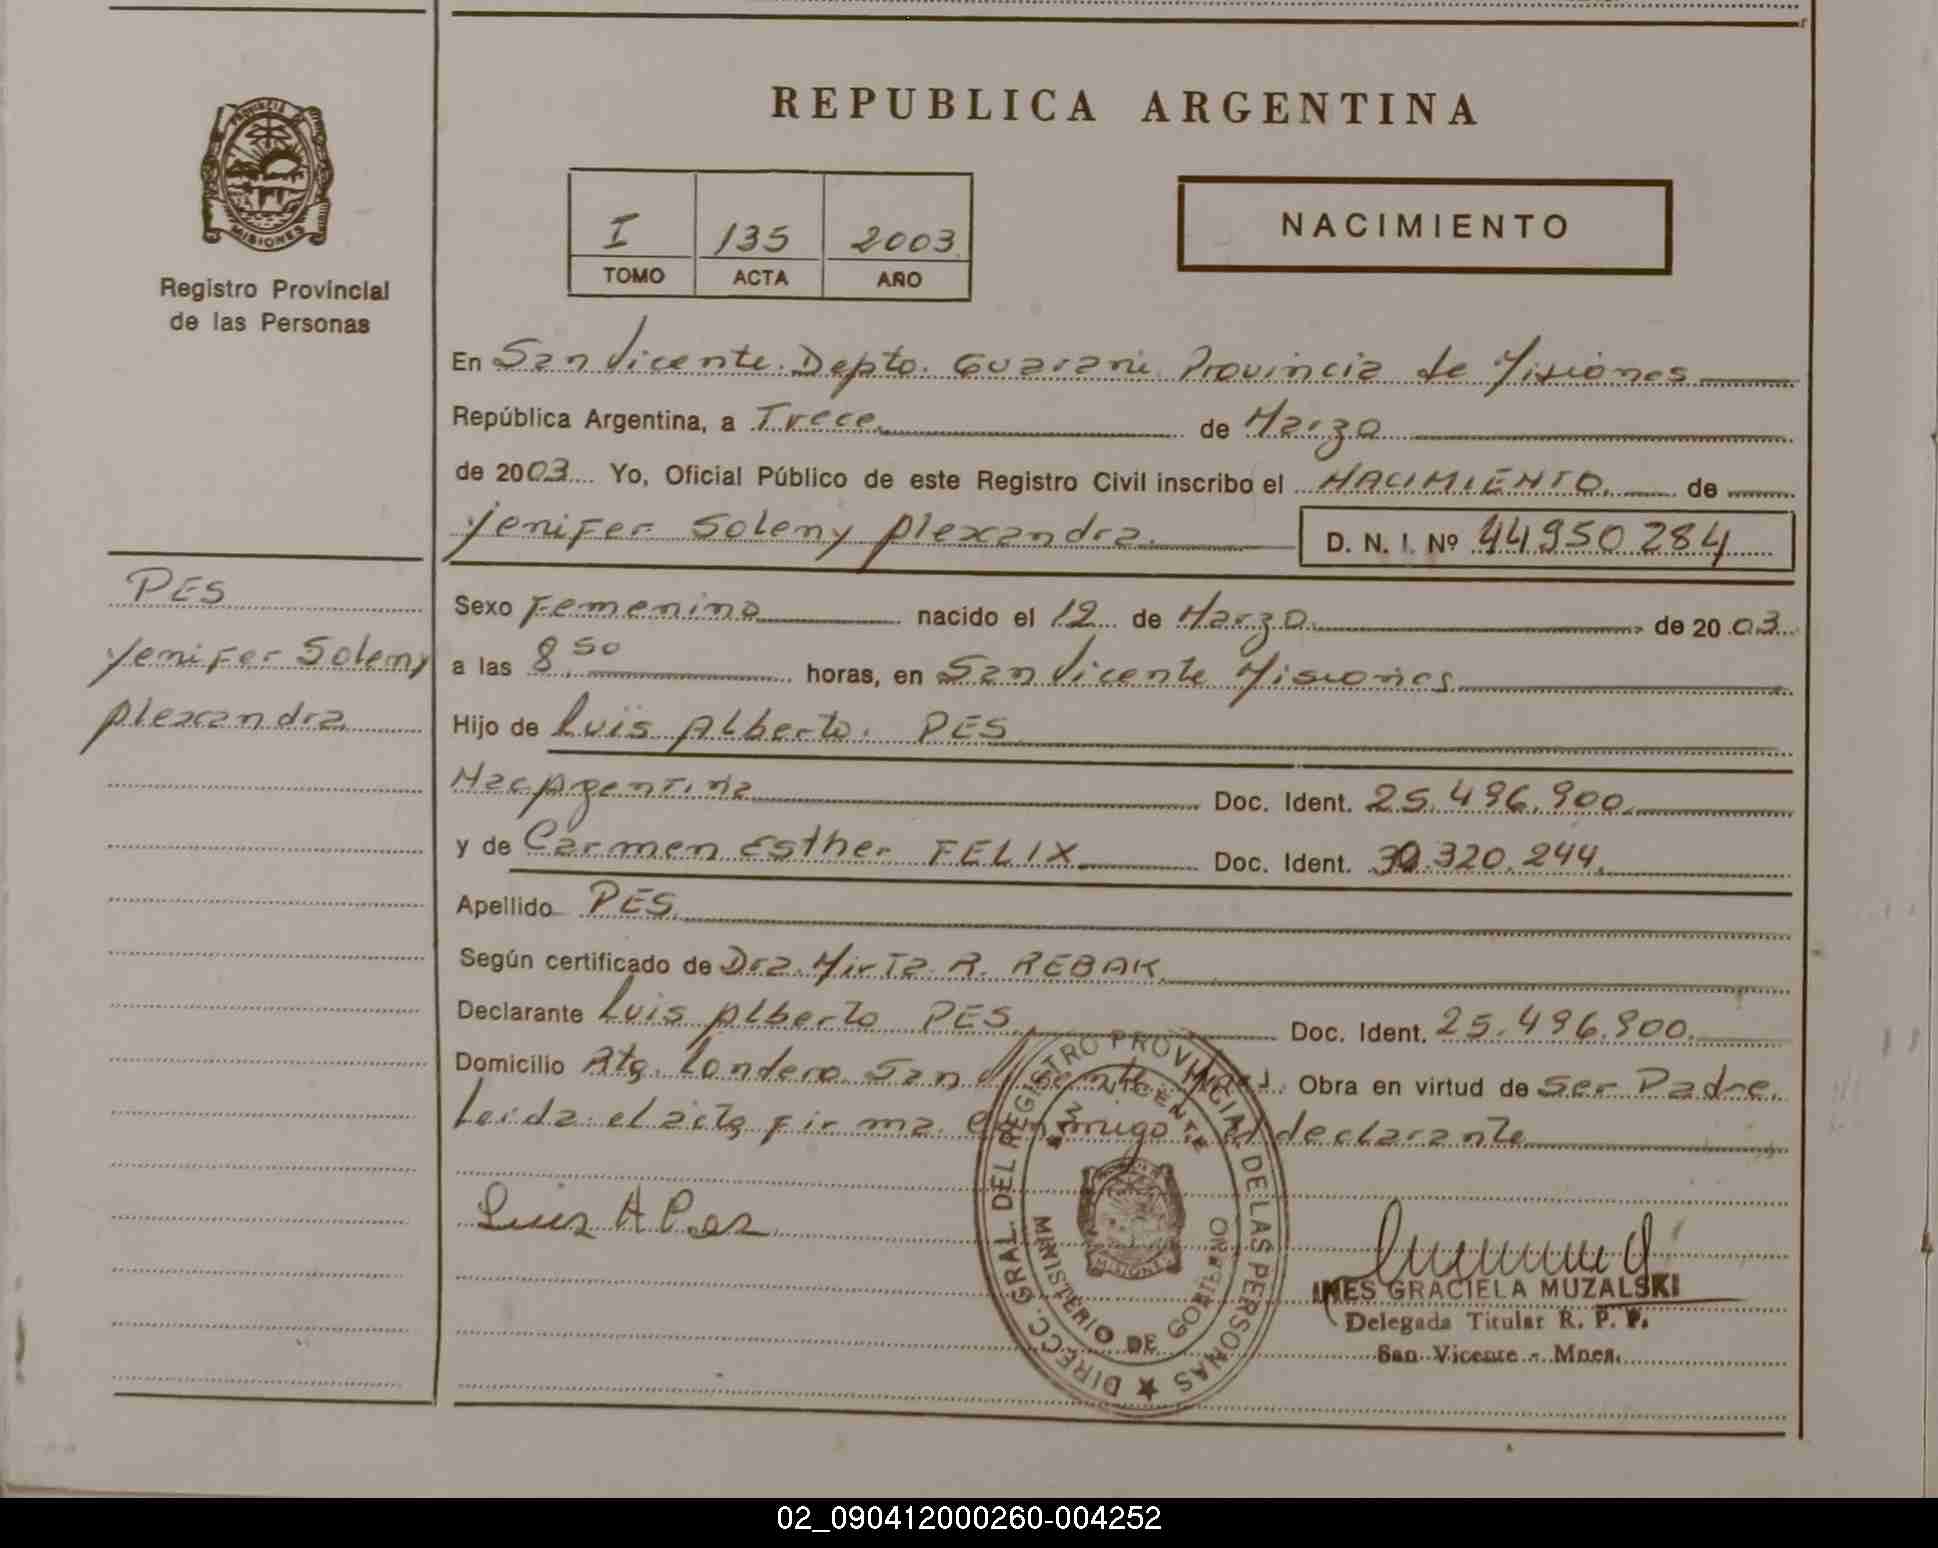 REPUBLICA ARGENTINA
PROVINCIA DE
MISIONES
Registro Provincial
de las Personas
I 135 2003
TOMO ACTA AÑO
NACIMIENTO
En San Vicente. Depto. Guarani. Provincia de Misiones
República Argentina, a Trece de Marzo
de 2003 Yo, Oficial Público de este Registro Civil inscribo el NACIMIENTO de
Yenifer Soleny Alexandra. D. N. I. Nº 44950284
PES
Yenifer Soleny
Alexandra
Sexo Femenino nacido el 12 de Marzo de 2003
a las 8.50 horas, en San Vicente Misiones
Hijo de Luis Alberto. PES
Nac Argentina Doc. Ident. 25.496.900
y de Carmen Esther FELIX Doc. Ident. 30.320.244
Apellido PES
Según certificado de Dra. Mirta R. REBAK
Declarante Luis Alberto PES Doc. Ident. 25.496.900.
Domicilio Londero San Vicente Mnes. Obra en virtud de Ser Padre.
Leida el acta firma conmigo el declarante
Luis A Pes
DIRECC. GRAL. DEL REGISTRO PROVINCIAL DE LAS PERSONAS
SAN VICENTE
MISIONES
MINISTERIO DE GOBIERNO
INES GRACIELA MUZALSKI
Delegada Titular R. P. P.
San Vicente - Mnes.
02_090412000260-004252